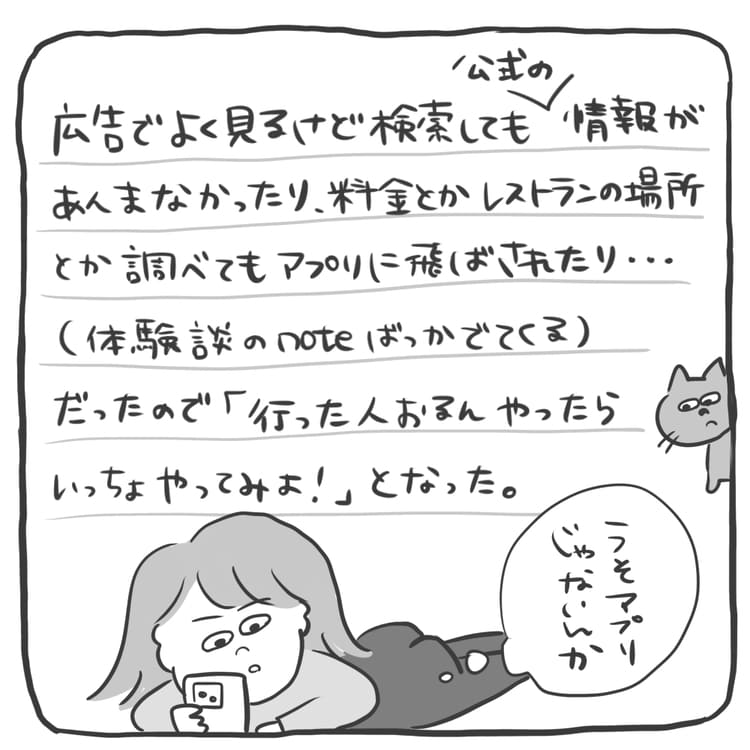 公式の
広告でよく見るけど検索しても 情報が
あんまなかったり、料金とかレストランの場所
とか調べてもアプリに飛ばされたり・・・
(体験談のnoteばっかでてくる)
だったので「行った人おるんやったら
いっちょやってみよ!」となった。
うそアプリ
じゃないんか